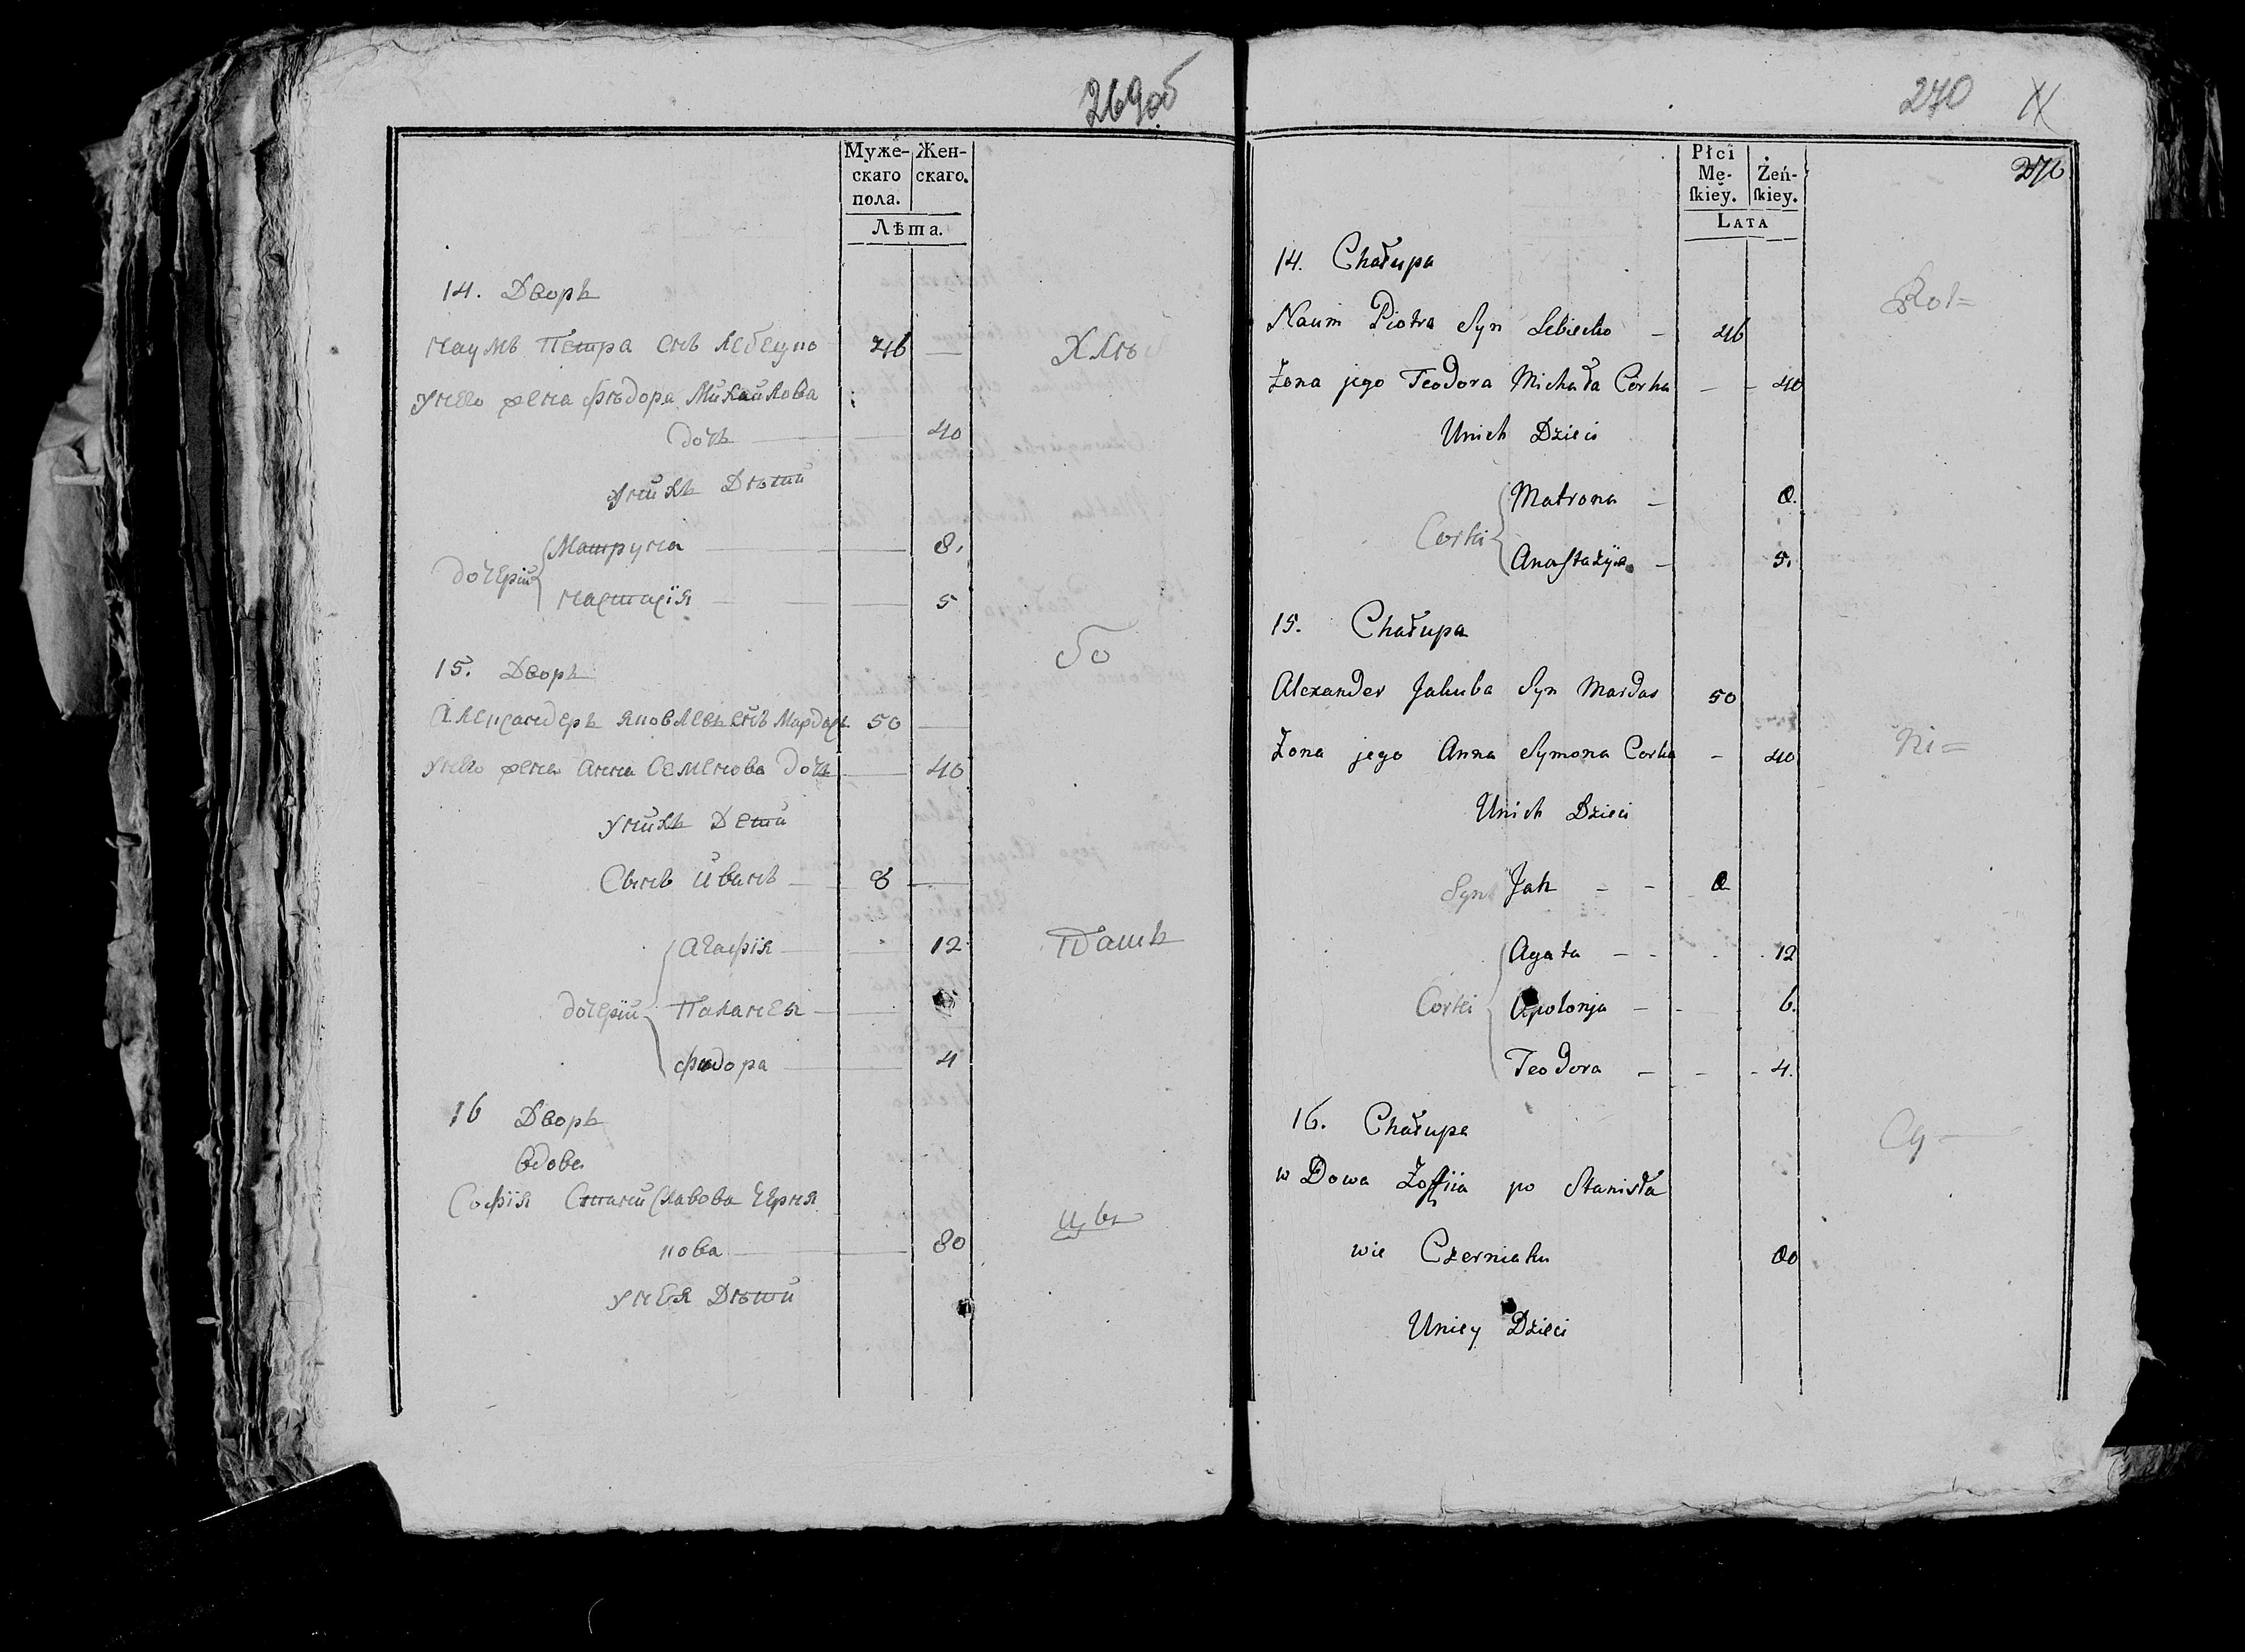 269об
Муже-
скаго
пола.
Жен-
скаго.
Лѣта.
14. Дворъ
Наумъ Петра снъ Лебецко 46 —
Хлѣб
Унего жена Фѣдора Михайлова
дочь — 40
Унихъ Дѣти
дочерїи
Матруна — 8.
Настасїя — 5
бо
15. Дворъ
Александеръ Яковлевъ снъ Мардасъ 50 —
Унего жена Анна Семенова дочь — 40
Унихъ Дети
Сынъ Иванъ — 8 —
дочерїи
Агафїя — 12
Пашъ
Паланея —
Фидора — 4
16 Дворъ
вдова
София Станиславова Черня
цы
кова — 80
Унея Дѣти
270
270
Płci
Mę-
ſkiey.
Żeń-
ſkiey.
Lata
14. Chałupa
Rol=
Naum Piotra Syn Lebiecko — 46
Żona jego Teodora Michała Córka — - 40
Unich Dzieci
Corki
Matrona — 8.
Anastazyia — 5.
15. Chałupa
Alexander Jakuba Syn Mardas 50
Żona jego Anna Symona Corka - 40
ni=
Unich Dzieci
Syn Jan - - 8
Corki
Agata - - 12
Apolonja - - 6.
Teodora - - - 4.
16. Chałupa
Cy —
wDowa Zoffiia po Stanisła
wie Czerniaku 80
Uniey Dzieci